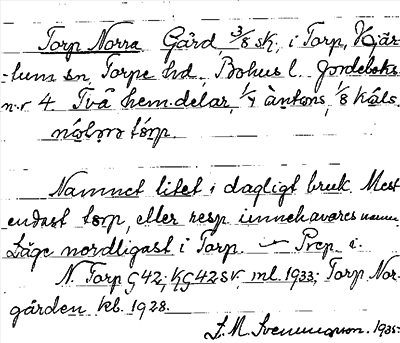 Torp Norra Gård, 3/8 sk, i Torp, Hjär-
tums sn, Torpe hd, Bohus l. Jordeboks-
n:r 4 Två hem.delar, 1/4 àntons, 1/8 Kåls.
nó̤lo̤rο tó̤rp.
Namnet litet i dagligt bruk. Mest
endast torp, eller resp. innehavares namn.
Läge nordligast i Torp. — Prep. i.
N. Torp G42; HG42sv. ml. 1933; Torp Nor-
gården kb. 1928.
1935.